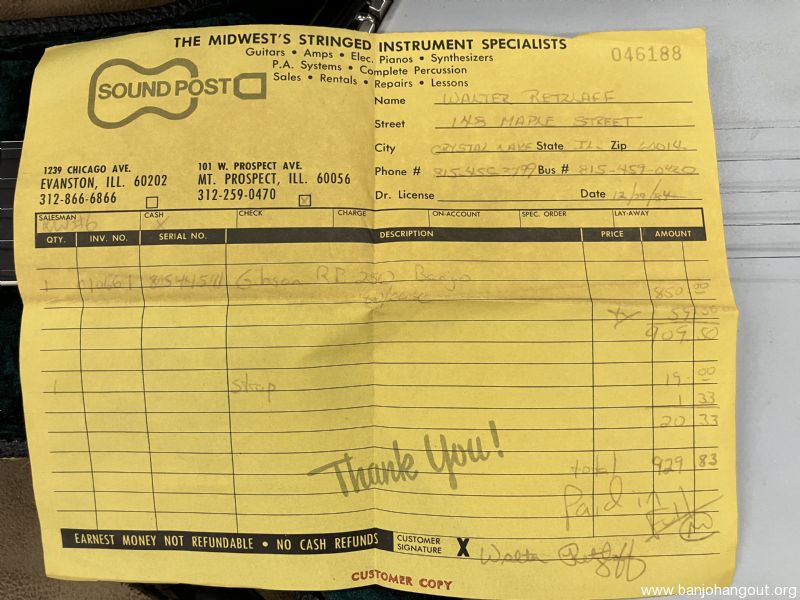 THE MIDWEST'S STRINGED INSTRUMENT SPECIALISTS
Guitars • Amps • Elec. Pianos • Synthesizers
P.A. Systems • Complete Percussion
Sales • Rentals • Repairs • Lessons
046188
SOUND POST
Name WALTER RETZLAFF
Street 148 MAPLE STREET
City CRYSTAL LAKE State IL Zip 60014
Phone # Bus # 815-459-0420
Dr. License Date
1239 CHICAGO AVE.
EVANSTON, ILL. 60202
312-866-6866
101 W. PROSPECT AVE.
MT. PROSPECT, ILL. 60056
312-259-0470 X
SALESMAN CASH X CHECK CHARGE ON-ACCOUNT SPEC. ORDER LAY-AWAY
QTY. INV. NO. SERIAL NO. DESCRIPTION PRICE AMOUNT
1 81544541 Gibson RB 250 Banjo
w/case 850 00
tx 59 50
909 50
1 Strap 19 00
1 33
20 33
Thank You!
total 929 83
Paid in Full
EARNEST MONEY NOT REFUNDABLE • NO CASH REFUNDS
CUSTOMER SIGNATURE X Walter Retzlaff
CUSTOMER COPY
www.banjohangout.org